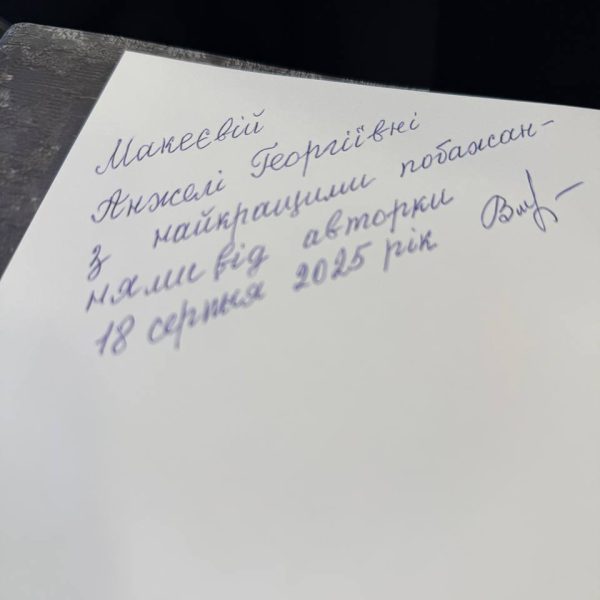 Макеєвій
Анжелі Георгіївні
з найкращими побажан-
нями від авторки
18 серпня 2025 рік